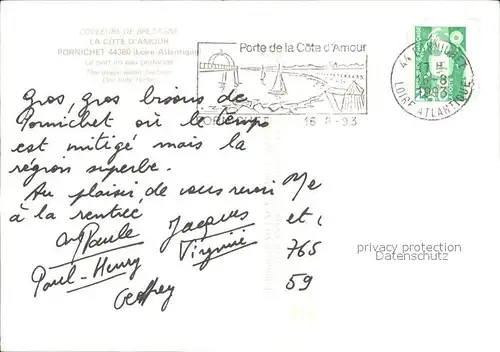 COULEURS DE BRETAGNE
LA COTE D'AMOUR
PORNICHET 44380 (Loire-Atlantique)
Le port en eau profonde
The deep water harbour
Der tiefe Hafen
Porte de la Côte d'Amour
16-8-93
44 PORNICHET
17 H
16-8
1993
LOIRE ATLANTIQUE
Gros, gros bisous de
Pornichet où le temps
est mitigé mais la
région superbe.
Au plaisir de vous revoir
à la rentrée
Paule Jacques
Paul-Henry Virginie
Geoffrey
Me
et
765
59
privacy protection
Datenschutz